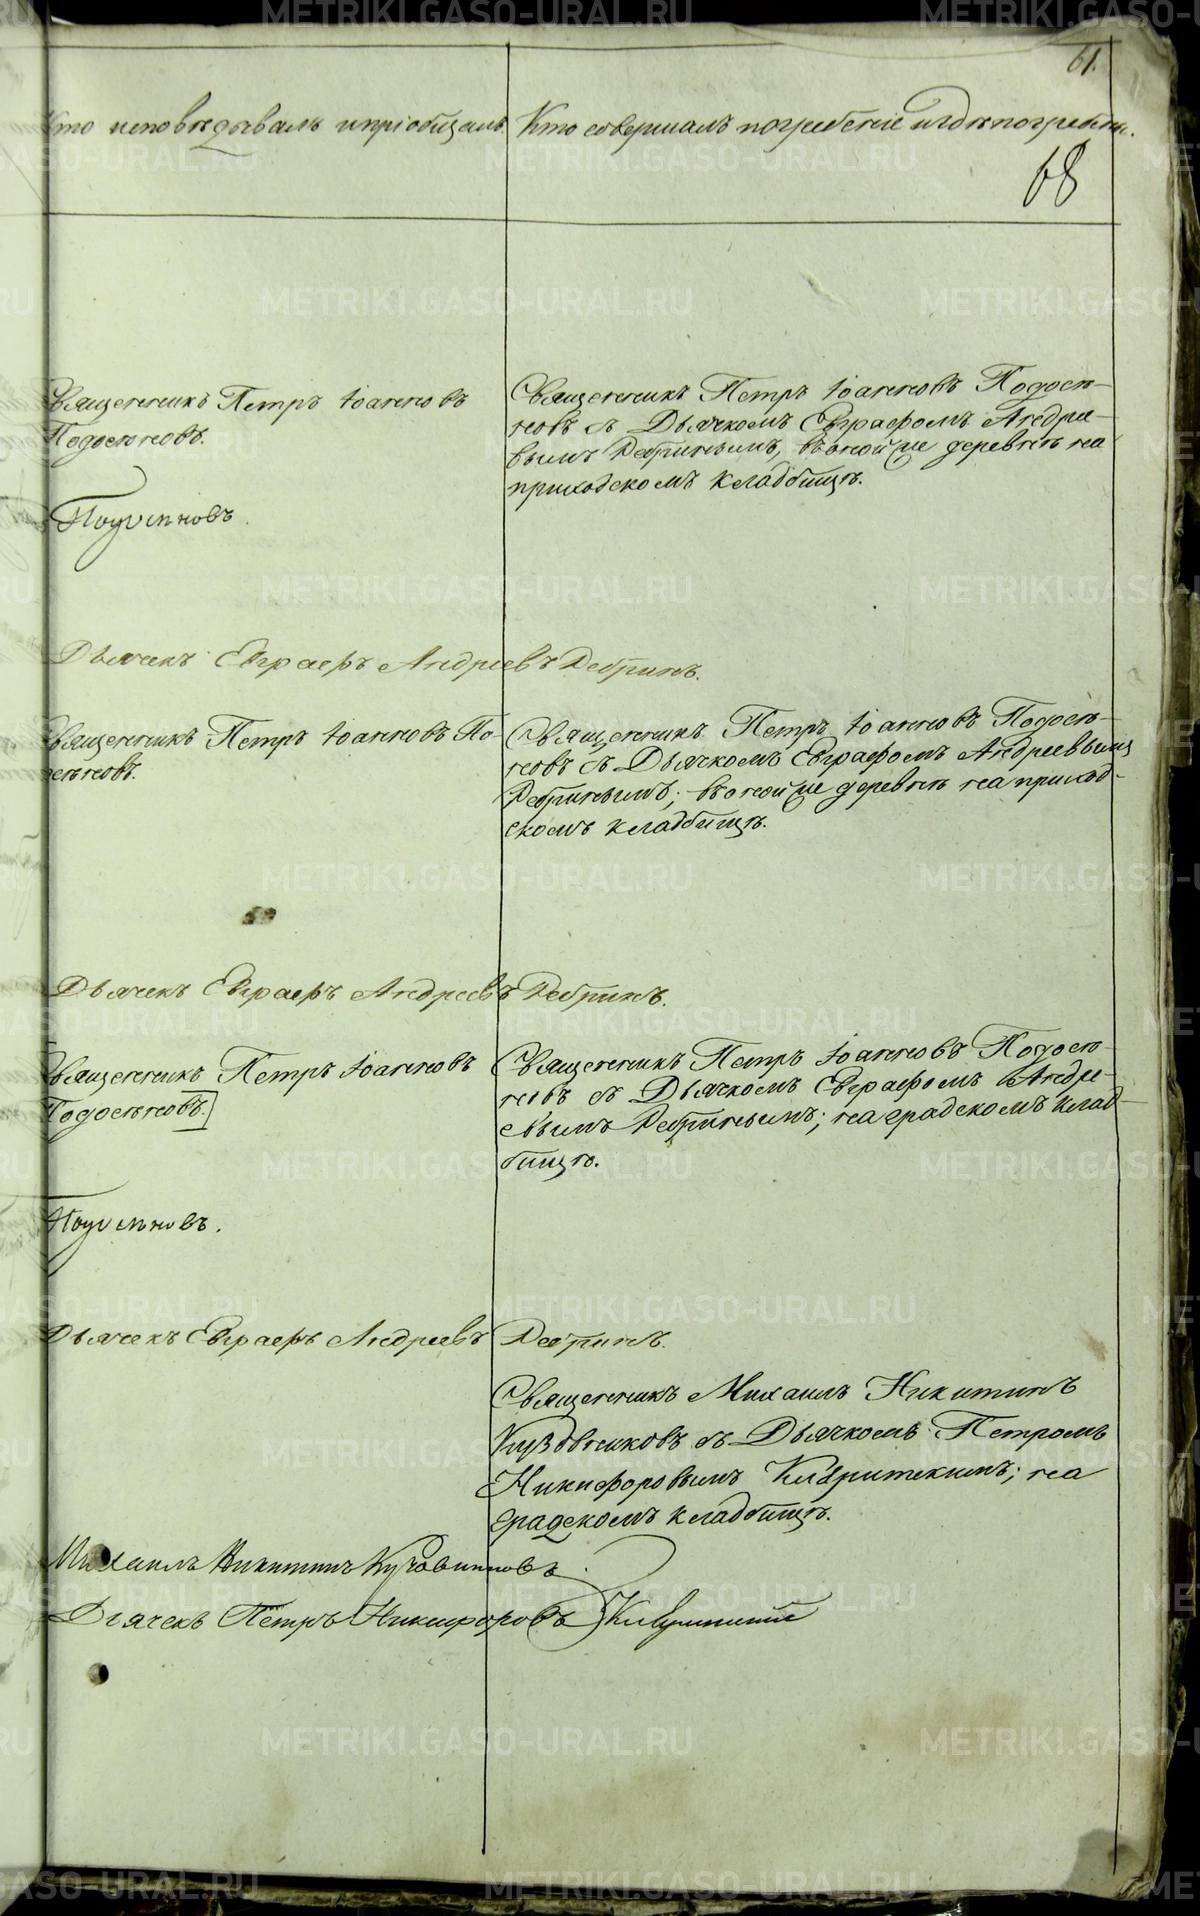 61.
Кто исповѣдывалъ и пріобщалъ
Кто совершалъ погребеніе и гдѣ погребены.
68
Священникъ Петръ Іоанновъ
Подосеновъ.
Священникъ Петръ Іоанновъ Подосе-
новъ съ Дьячкомъ Евграфомъ Андре-
вымъ Ребринымъ, въ оной же деревнѣ на
приходскомъ кладбищѣ.
Подосеновъ.
Дьячекъ Евграфъ Андреевъ Ребринъ.
Священникъ Петръ Іоанновъ По-
сеновъ.
Священникъ Петръ Іоанновъ Подосе-
новъ съ Дьячкомъ Евграфомъ Андреевымъ
Ребринымъ; въ оной же деревнѣ на приход-
скомъ кладбищѣ.
Дьячекъ Евграфъ Андреевъ Ребринъ.
Священникъ Петръ Іоанновъ
Подосеновъ.
Священникъ Петръ Іоанновъ Подосе-
новъ съ Дьячкомъ Евграфомъ Андре-
евымъ Ребринымъ; на градскомъ клад-
бищѣ.
Подосеновъ.
Дьячекъ Евграфъ Андреевъ Ребринъ.
Священникъ Михаилъ Никитинъ
съ Дьячкомъ Петромъ
Никифоровымъ на
градскомъ кладбищѣ.
Михаилъ Никитинъ
Дьячекъ Петръ Никифоровъ
METRIKI.GASO-URAL.RU